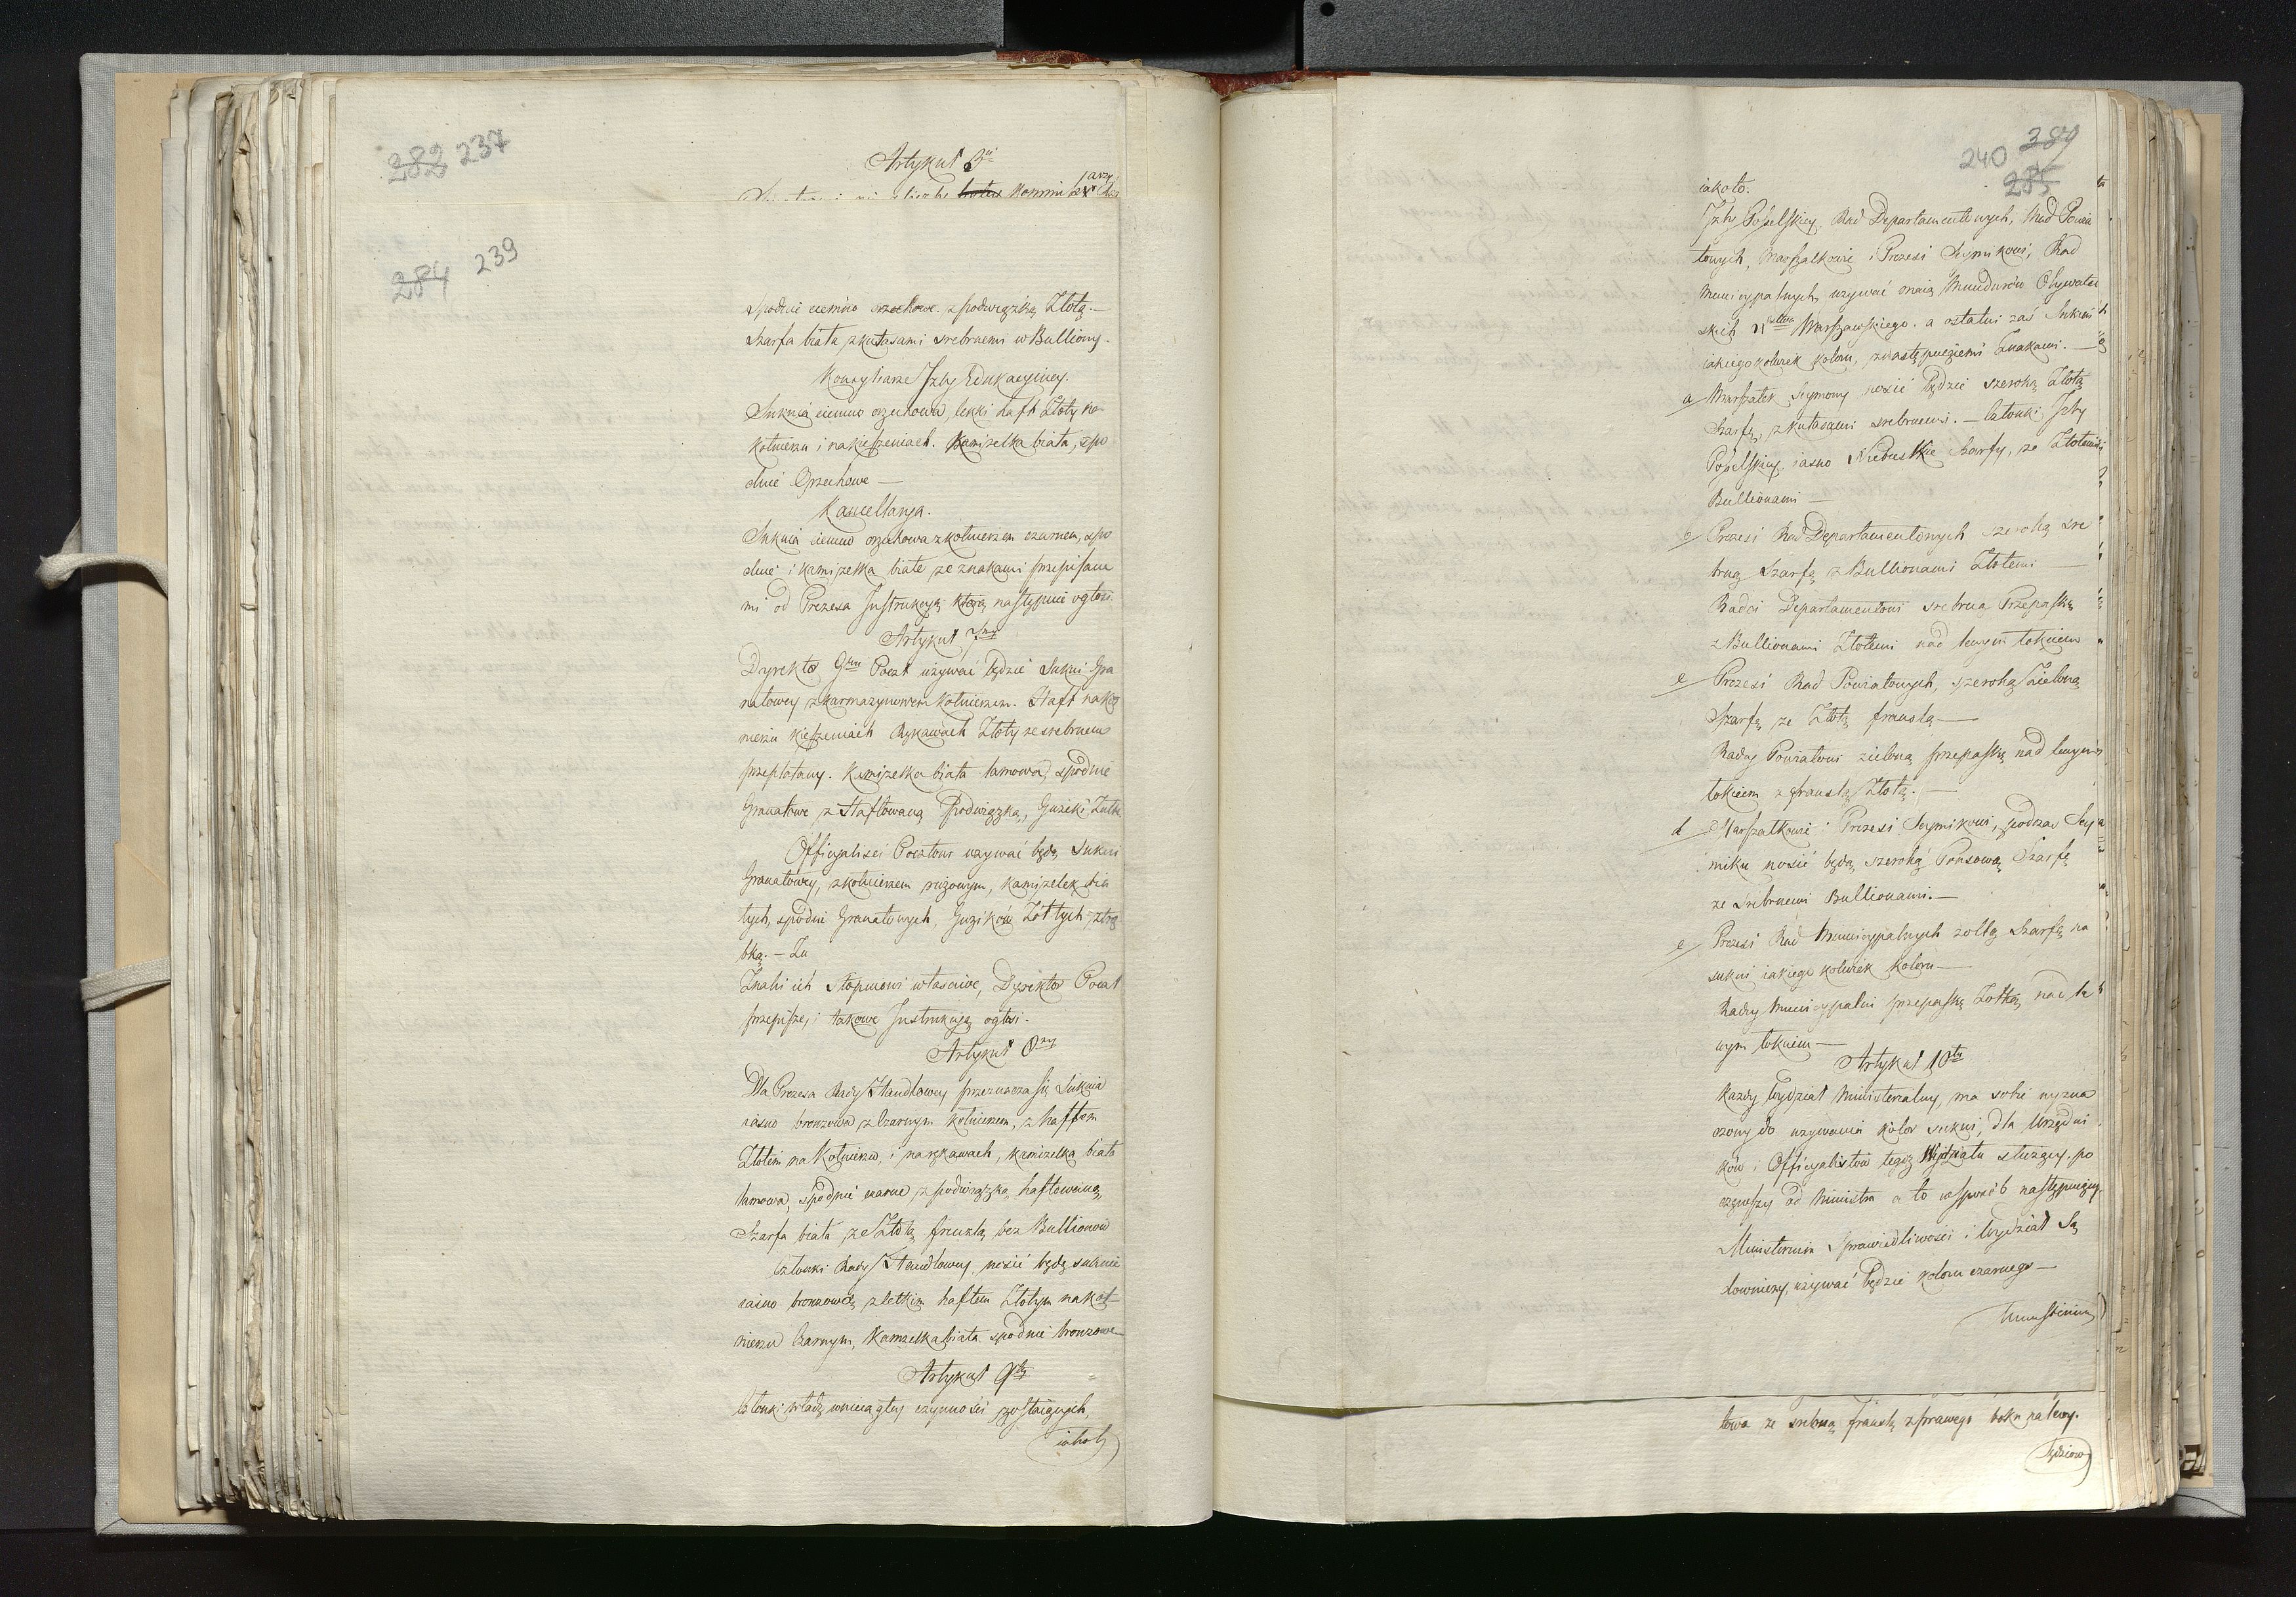 282 237
Artykuł 3ci
284 239
Spodnie ciemno orzechowe z podwiązką Złotą. —
Szarfa biała z kutasami srebrnemi w Bulliony.
Konsyliarze Izby Edukacyiney.
Suknia ciemno orzechowa, lekki haft Złoty na
kołnierzu i na kieszeniach. Kamizelka biała, spo
dnie Orzechowe —
Kancellarya.
Suknia ciemno orzechowa z kołnierzem czarnem, spo
dnie i kamizelka białe ze znakami przepisane
mi od Prezesa Instrukcyą którą następnie ogłosi.
Artykuł 7my
Dyrektor Gllny Poczt używać będzie Sukni Gra
natowey z karmazynowem kołnierzem. Haft na koł
nierzu kieszeniach Rękawach Złoty ze srebrnem
przeplatany. Kamizelka biała lamowa, spodnie
Granatowe z Haftowaną Podwiązką, Guziki Żółte
Officyalisci Pocztowi używać będą Sukni
Granatowey, z kołnierzem różowym, kamizelek bia
łych, spodni Granatowych, Guzików Żółtych z trą
bką. — Zn
Znaki ich Stopniowi właściwe, Dyrektor Poczt
przepisze, i takowe Instrukcyą ogłosi.
Artykuł 8my
Dla Prezesa Rady Handlowey przeznacza się Suknia
iasno bronzowa z Czarnym kołnierzem, z haftem
Złotem na Kołnierzu, i na rękawach, kamizelka biała
lamowa, Spodnie czarne z podwiązką haftowaną,
Szarfa biała ze Złotą frenzlą bez Bullionów
Członki Rady Handlowey, nosić będą suknie
iasno bronzową z letkim haftem Złotym na koł-
nierzu Czarnym, Kamzelka biała spodnie bronzowe
Artykuł 9ty
Członki władz wnieciągłey czynności zostaiących,
iakoto
240 389
285
iakoto.
Izby Poselskiey, Rad Departamentowych, Rad Powia
towych, Marszałkowie i Prezesi Seymikowi, Rad
Municypalnych, używać maią Mundurów Obywatel
skich Marszawskiego. a ostatni zaś Sukni
iakiegokolwiek koloru, z następuiącemi Znakami. —
a Marszałek Seymowy nosić będzie szeroką Złotą
Szarfę, z kutasami srebrnemi. — Członki Izby
Poselskiey iasno Niebieskie Szarfy, ze Złotemi
Bullionami —
b Prezesi Rad Departamentowych szeroką sre
brną Szarfę z Bullionami Złotemi —
Radcy Departamentowi srebrna Przepaskę
z Bullionami Złotemi nad lewym łokciem
c Prezesi Rad Powiatowych, szeroką Zieloną
Szarfę ze Złotą franzlą —
Radcy Powiatowi zieloną przepaskę nad lewym
łokciem z franzlą Złotą. —
d Marszałkowie i Prezesi Seymikowi, podczas Sey
miku nosić będą szeroką Ponsową Szarfę
ze Srebrnemi Bullionami. —
e Prezesi Rad Municypalnych żołtą Szarfę na
sukni iakiego kolwiek koloru —
Radcy Municypalni przepaskę Żołtą nad le
wym łokciem —
Artykuł 10ty
Każdy Wydział Ministerialny, ma sobie wyzna
czony do używania kolor sukni, dla Urzędni
ków i Officyalistów tegoż Wydziału służący, po
cząwszy od Ministra a to w sposób następuiący.
Ministerium Sprawiedliwości i Wydział Są
downiczy, używać będzie koloru czarnego —
Ministerium
towa ze srebrną franzlą z prawego boku na lewy.
Sędziow